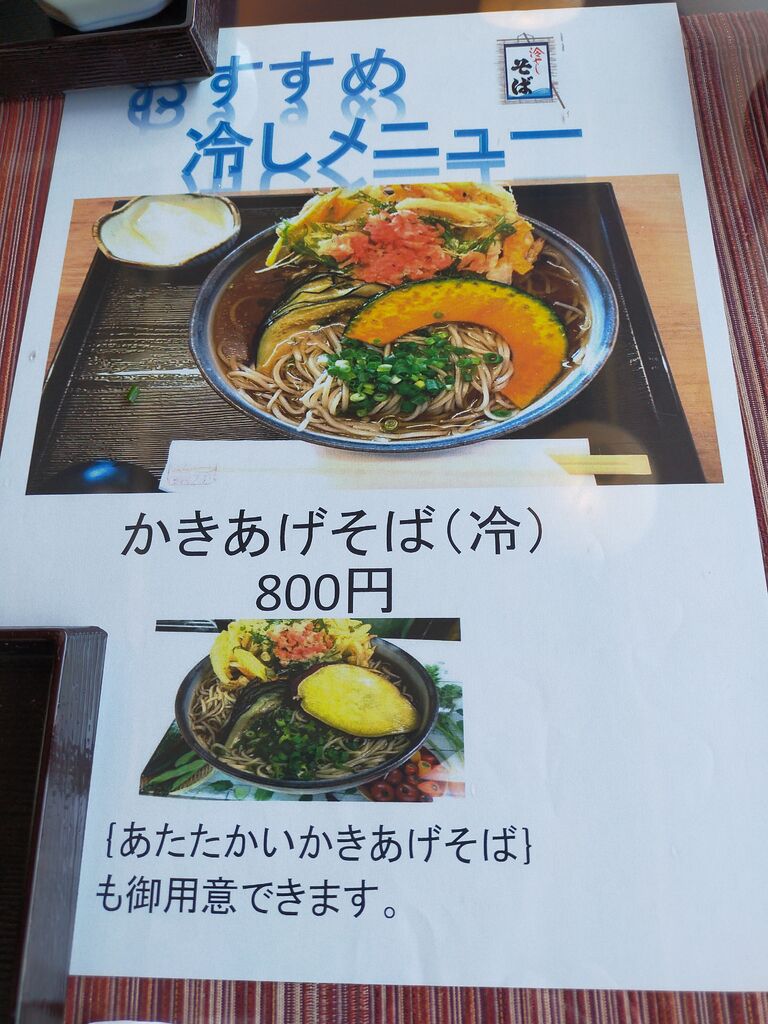 おすすめ
冷やし
そば
冷しメニュー
かきあげそば（冷）
800円
{あたたかいかきあげそば}
も御用意できます。